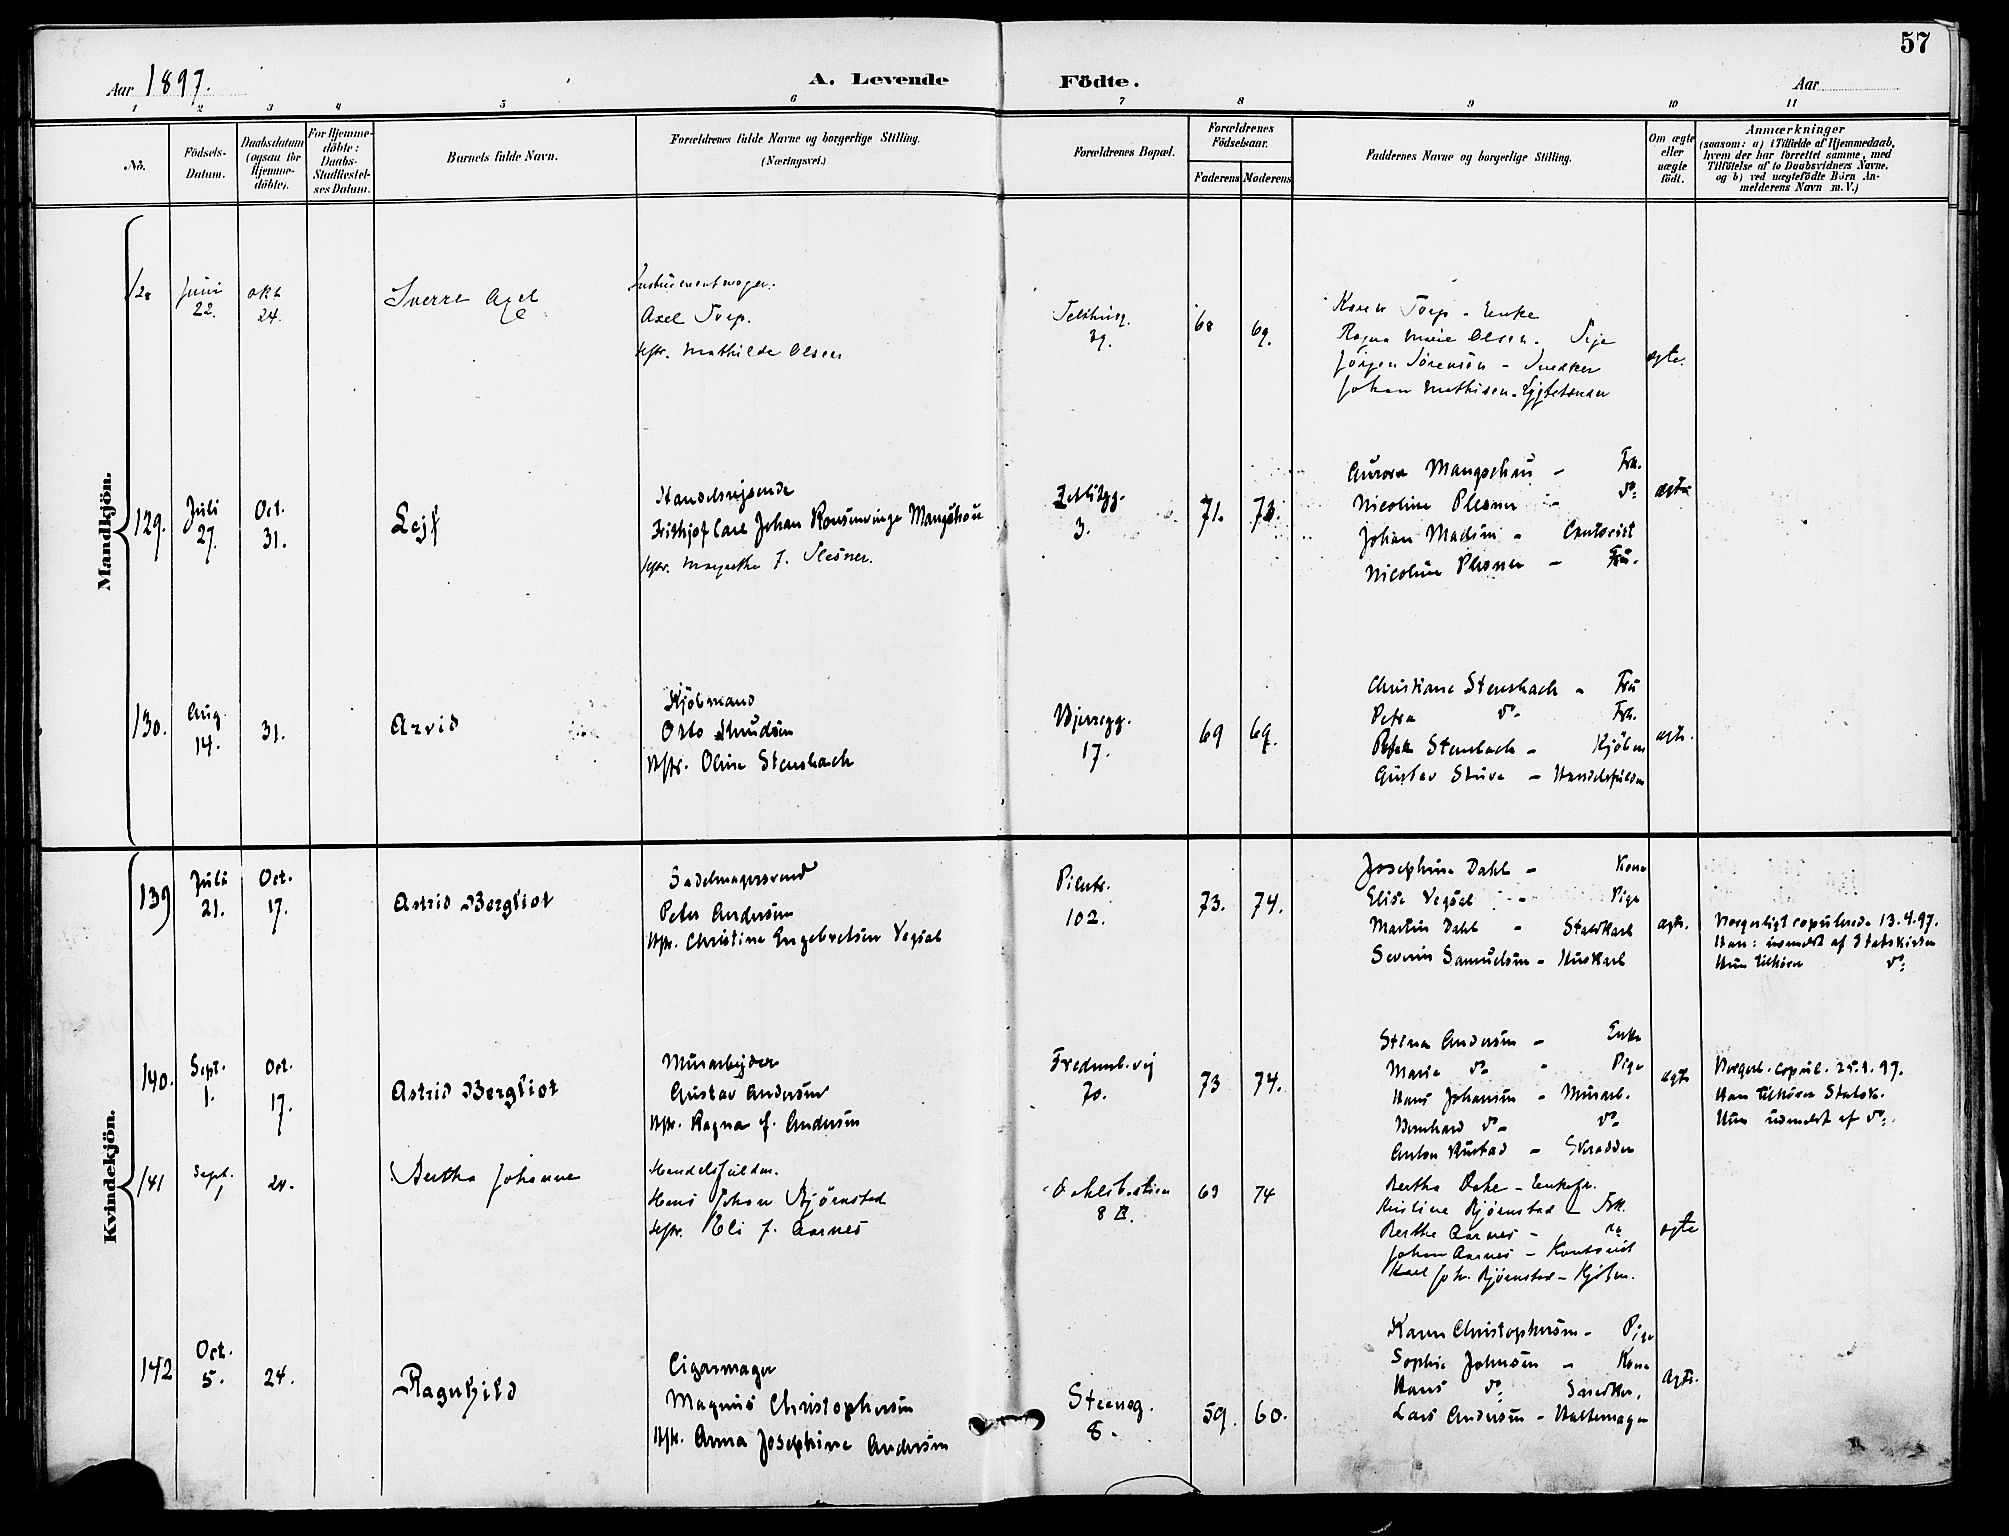 57
Aar 1897.
A. Levende Födte.
Aar
1 2 3 4 5 6 7 8 9 10 11
No.
Födsels-Datum.
Daabsdatum (ogsaa for Hjemme-döbte).
For Hjemme-döbte: Daabs-Stadfæstel-ses Datum.
Barnets fulde Navn.
Forældrenes fulde Navne og borgerlige Stilling. (Næringsvei.)
Forældrenes Bopæl.
Forældrenes Födselsaar.
Faderens Moderens
Faddernes Navne og borgerlige Stilling.
Om ægte eller uægte födt.
Anmærkninger
(saasom: a) i Tilfælde af Hjemmedaab, hvem der har forrettet samme, med Tilföielse af to Daabsvidners Navne. og b) ved uægtefödte Börn An-melderens Navn m.V.)
Mandkjön.
128
Juni 22.
okt 24.
Sverre Axel
Instrumentmager.
Axel Torp.
Hstr. Mathilde Olsen
29.
68 69.
Karen Torp - Enke
Ragna Marie Olsen. Pige
Jörgen Sörensen - Snedker
Johan Mathisen - Lygtetænder
ægte.
129.
Juli 27.
Oct. 31.
Lejf
Handelsrejsende
Frithjof Carl Johan Mangschou
Hstr. Margrethe f. Plesner.
3.
71. 73.
Aurora Mangschou - Frk.
Nicoline Plesner - do
Johan Madsen - Contorist
Nicoline Plesner - Fru.
ægte
130.
Aug. 14.
31.
Arvid
Kjöbmand
Otto Knudsen
Hstr. Oline Stensbach
Bjerregg. 17.
69 69.
Christiane Stensbach - Fru
Petra do - Frk.
Stensbach - Kjöbm
Gustav - Handelsfuldm
ægte.
Kvindekjön.
139
Juli 21.
Oct. 17.
Astrid Bergliot
Sadelmagersvend
Peter Andersen
Hstr. Christine Engebretsen Vegsel
Pilestr. 102.
73. 74.
Josephine Dahl - Kone
Elise Vegsel - Pige
Martin Dahl - Staldkarl
Severin Samuelsen - Huskarl
ægte.
Borgerligt copulerede 13.4.97.
Han: udmeldt af Statskirken
Hun tilhörer do
140.
Sept. 1.
Oct. 17.
Astrid Bergliot
Murarbejder
Gustav Andersen
Hstr. Ragna f. Andersen
Fredensb. vej 70.
73 74.
Stina Andersen - Enke
Marie do - Pige
Hans Johansen - Murarb.
Bernhard do - do
Anton Rustad - Skrædder
ægte
Borgerl. copul. 25.1.97.
Han tilhörer Statsk.
Hun udmeldt af do.
141
Sept. 1
24.
Bertha Johanne
Handelsfuldm.
Hans Johan Bjørnstad
Hstr. Eli f. Aarnes
8 B.
69 74
Kristine Bjørnstad - Frk.
Berthe Aarnes - do
Johan Aarnes - Kontorist
Karl Joh. Bjørnstad - Kjöbm.
ægte
142
Oct. 5.
24.
Ragnhild
Cigarmager
Magnus Christophersen
Hstr. Anna Josephine Andersen
Steensg. 8.
59. 60.
Karen Christophersen - Pige
Sophie Johnsen - Kone
Hans do - Snedker.
Lars Andersen - Hattemager
ægte.